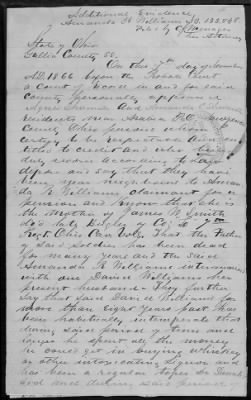 Additional Evidence
Amanda M Williams No. 133,008
Filed by
his Attorney
State of Ohio
Gallia County SS.
On this 7th day of November
A.D. 1866 before the Probate Court
a Court of Record in and for said
County personally appeared
and
residents near Arabia P.O. Lawrence
County Ohio persons whom I
certify to be respectable and en-
titled to credit and who being
duly sworn according to law
depose and say that they have
been near neighbors to Aman-
da M Williams, claimant for a
pension and know that she is
the Mother of James W. Smith
dec'd late of Co.
Regt Ohio Vols. That the Father
of Said Soldier has been dead
for many years and the said
Amanda M Williams intermarried
with one Daniel Williams her
present husband. They further
Say that said Daniel Williams for
more than eight years past has
been habitually intemperate that
during said period of time and
longer he spent all the money
he could get in buying whiskey
or other intoxicating liquor and
has been a regular toper or drunk
ard and during said period of